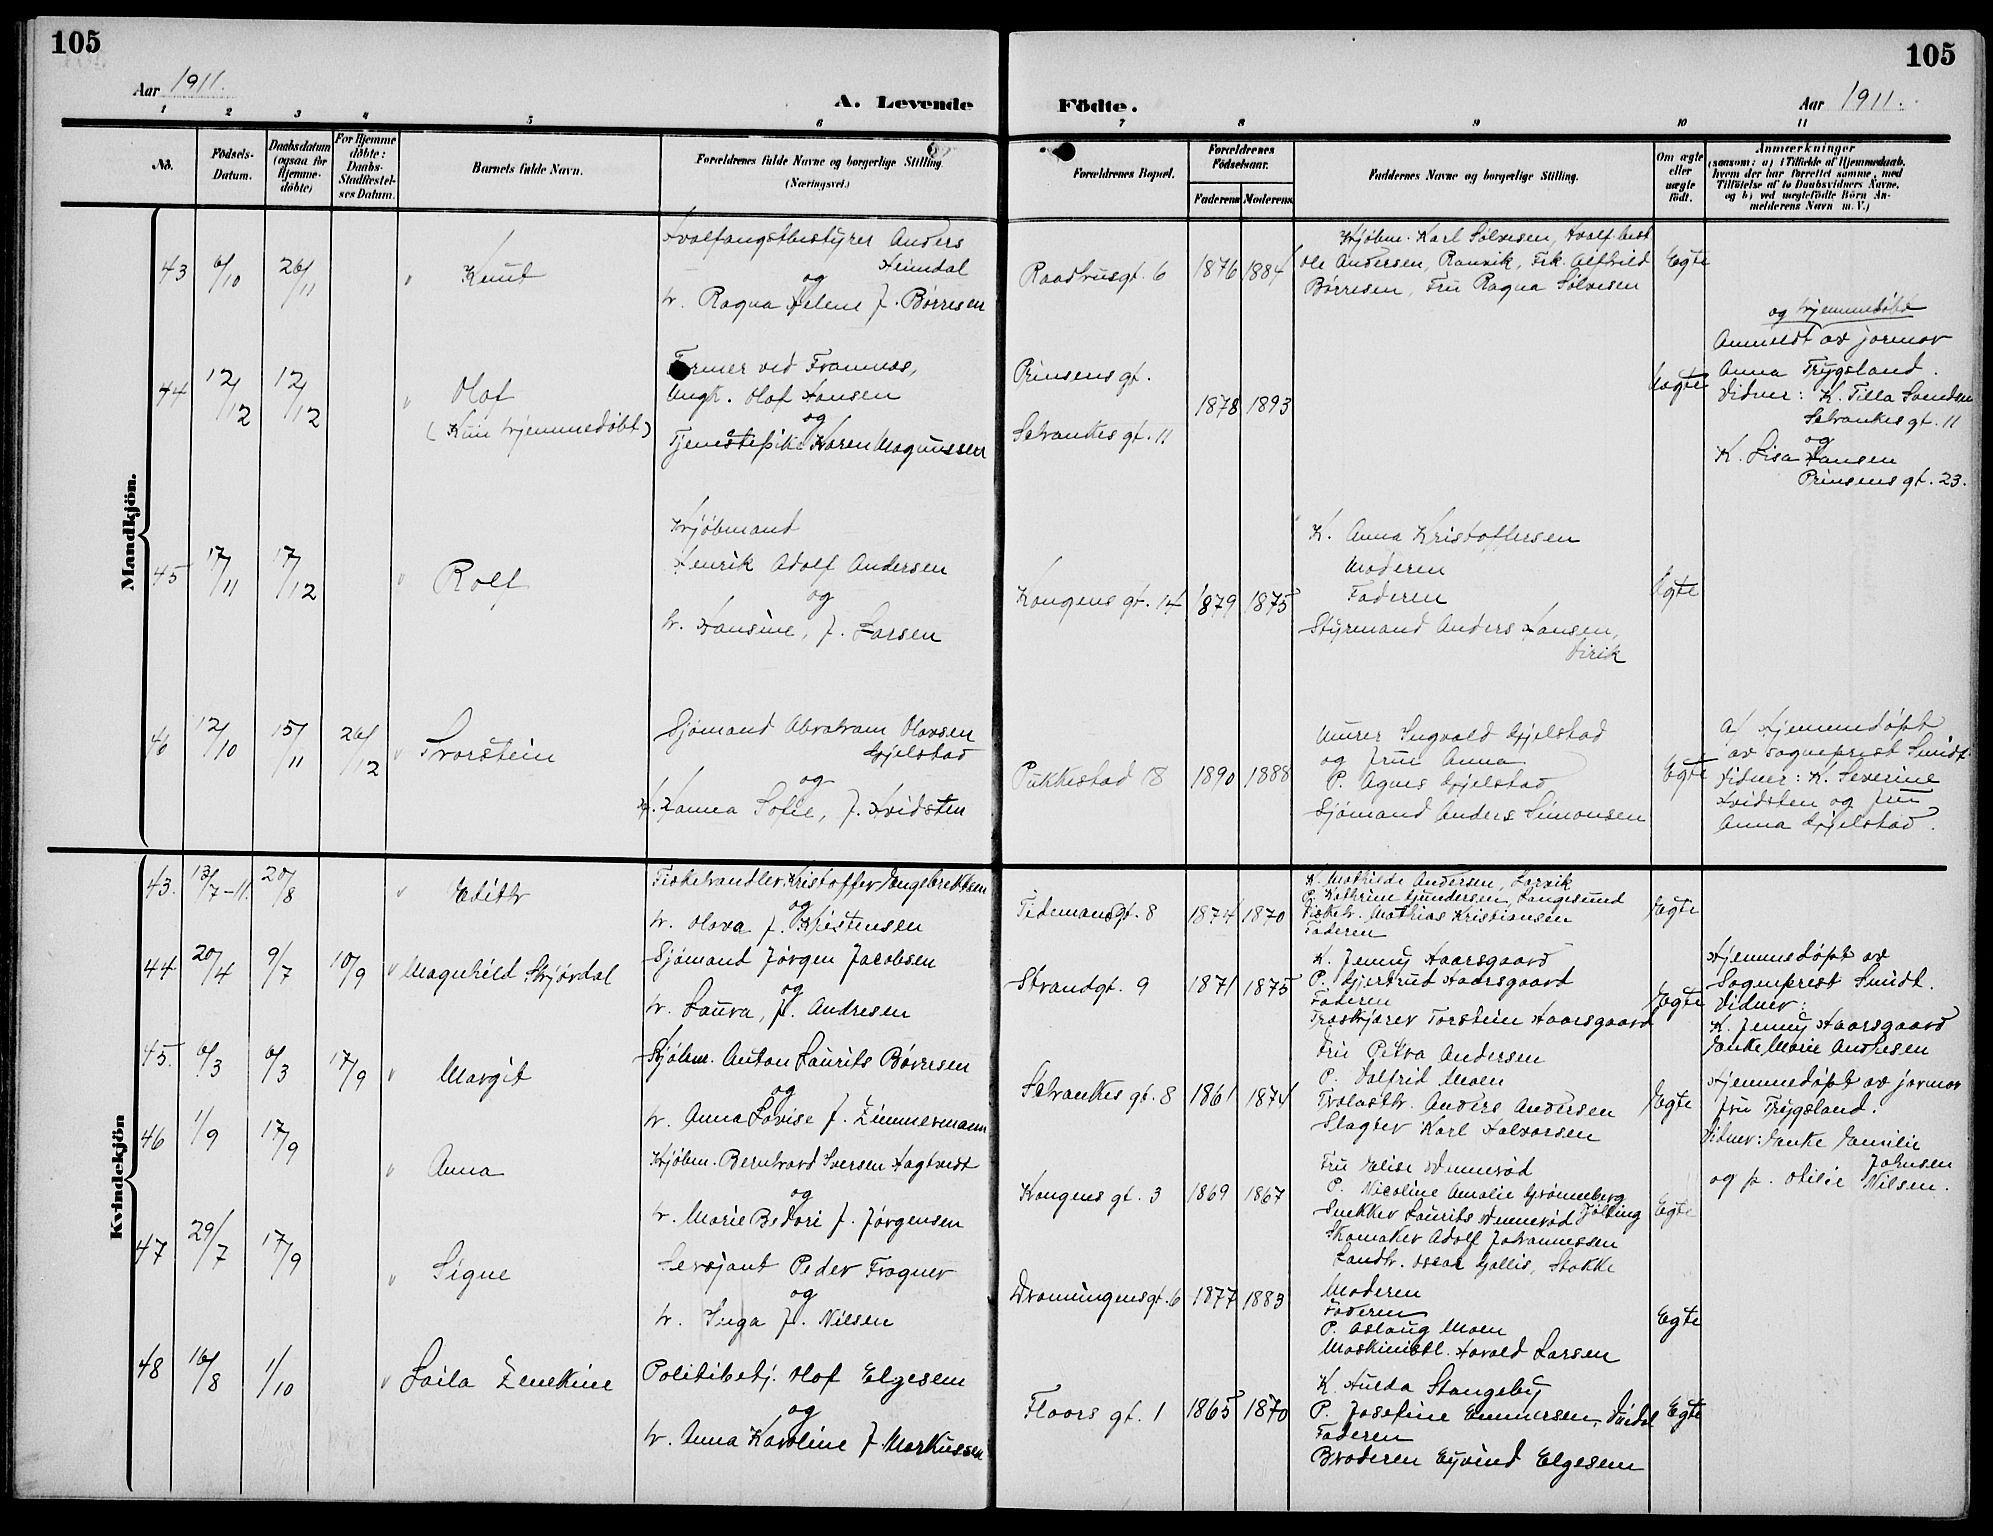 105
105
Aar 1911.
A. Levende Födte.
Aar 1911.
1 2 3 4 5 6 7 8 9 10 11
No.
Födsels-Datum.
Daabsdatum (ogsaa for Hjemme-döbte)
For Hjemme döbte: Daabs-Stadfæstel-ses Datum.
Barnets fulde Navn.
Forældrenes fulde Navne og borgerlige Stilling (Næringsvei.)
Forældrenes Bopæl.
Forældrenes Födselsaar.
Faderens Moderens
Faddernes Navne og borgerlige Stilling.
Om ægte eller uægte födt.
Anmærkninger
(saasom: a) i Tilfælde af Hjemmedaab, hvem der har forrettet samme, med Tilföielse af to Daabsvidners Navne, og b) ved uægtefödte Börn An-melderens Navn m. V.)
Mandkjön.
43 6/10 26/11 Knut
Hvalfangstbestyrer Anders
Heimdal
og
h. Ragna Helene f. Børresen
Raadhusgt. 6 1876 1884
Kjøbm. Karl Sølvesen, Hvalf.best
Ole Andersen, Ranvik, Frk. Alfhild
Børresen, Fru Ragna Sølvesen
Egte
44 12/12 12/12 Olaf
(Kun hjemmedøbt)
Former ved Framnæs,
Ungk. Olaf Hansen
og
Tjenestepike Karen Magnussen
Prinsens gt.
Schankes gt. 11
1878 1893
Uegte
og hjemmedøbt
Anmeldt av jormor
Anna Trygsland.
Vidner: K. Tilla Svendsen
Schankes gt. 11
og
K. Lisa Hansen
Prinsens gt. 23.
45 17/11 17/12 Rolf
Kjøbmand
Henrik Adolf Andersen
og
h. Hansine, f. Larsen
Kongens gt. 14 1879 1875
K. Anna Kristoffersen
Moderen
Faderen
Styrmand Anders Hansen,
Virik
Egte
46 12/10 15/11 26/12 Thorstein
Sjømand Abraham Olavsen
Gjelstad
og
h. Hanna Sofie, f. Hvidsten
Pukkestad 18 1890 1888
Murer Ingvald Gjelstad
og frue Anna
P. Agnes Gjelstad
Sjømand Anders Simonsen
Egte
a/ Hjemmedøpt
av sogneprest Smidt
Vidner: K. Severine
Hvidsten og fru
Anna Gjelstad.
Kvindekjön
43. 13/7-11. 20/8 Edith
Fiskehandler Kristoffer Engebrektsen
og
h. Olava f. Kristensen
Tidemansgt. 8 1874 1870
K. Mathilde Andersen, Larvik
P. Kathrine Gundersen, Langesund
Fiskeh. Mathias Kristiansen
Faderen
Egte
44 20/4 9/7 10/9 Magnhild Skjørdal
Sjømand Jørgen Jacobsen
og
h. Laura, f. Andresen
Strandgt. 9 1871 1875
K. Jenny Haarsgaard
P. Gjertrud Haarsgaard
Faderen
Traskjærer Torstein Haarsgaard
Egte
Hjemmedøpt av
Sogneprest Smidt.
Vidner:
K. Jenny Haarsgaard
Enke Marie Andresen
45. 6/3 6/3 17/9 Margit
Kjøbm. Anton Laurits Børresen
og
h. Anna Lovise f. Zimmermann
Schankes gt. 8 1861 1874
Fru Petra Andersen
P. Valfrid Moen
Anders Andersen
Slagter Karl Halvorsen
Egte
Hjemmedøpt av jormor
fru Trygsland.
Vidner: Enke Emilie
Johnsen
og p. Otilie Nilsen.
46 1/9 17/9 Anna
Kjøbm. Bernhard Iversen Hagtvedt
og
h. Marie Bedori f. Jørgensen
Kongens gt. 3 1869 1867
Fru Elise Unnerød
P. Nicoline Amalie Grønneberg
Tjølling
Snekker Laurits Unnerød
Skomaker Adolf Johannessen
Landh. Oscar Gallis, Stokke
Egte
47 29/7 17/9 Signe
Sersjant Peder Fragner
og
h. Inga f. Nilsen
Dronningensgt. 6 1877 1883
Moderen
Faderen
P. Aslaug Moen
Maskinistl. Harald Larsen
Egte
48 16/8 1/10 Laila
Politibetj. Olaf Elgesem
og
h. Anna Karoline f. Markussen
Floors gt. 1 1865 1870
K. Hulda Stangeby
P. Josefine Emmersen,
Faderen
Broderen Eyvind Elgesem
Egte